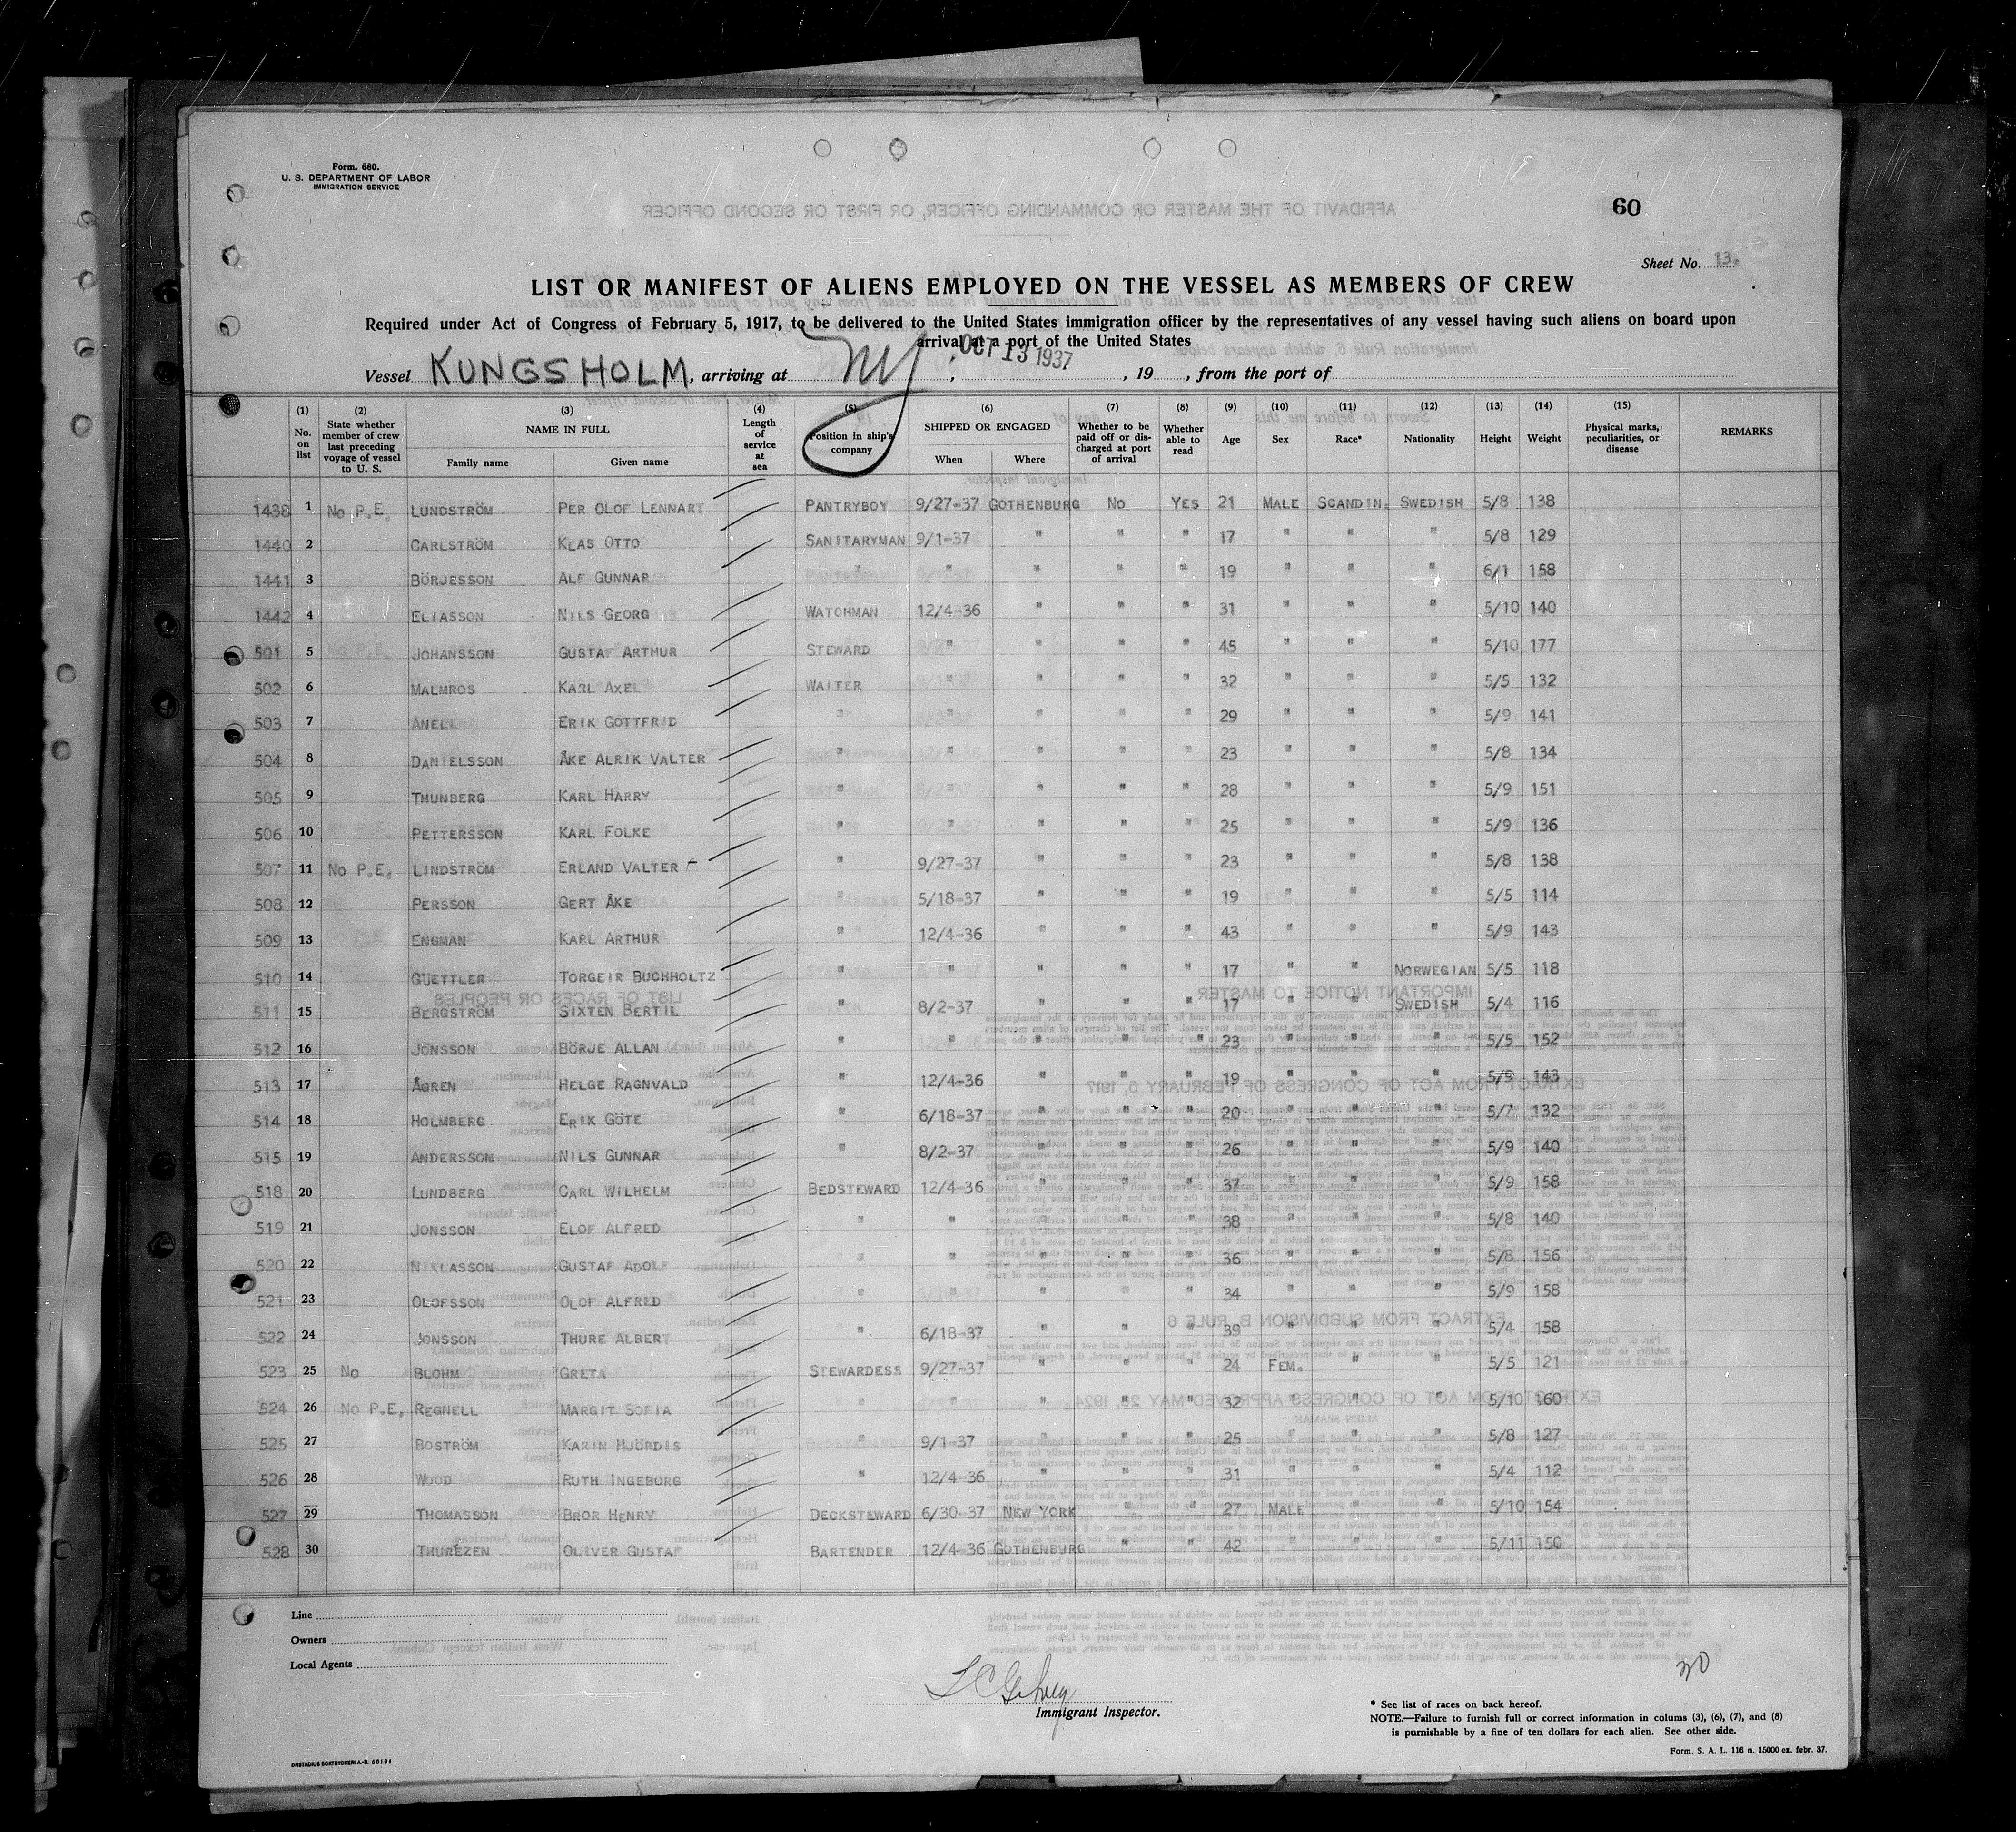 Form. 680.
U. S. DEPARTMENT OF LABOR
IMMIGRATION SERVICE
60
Sheet No. 13.
LIST OR MANIFEST OF ALIENS EMPLOYED ON THE VESSEL AS MEMBERS OF CREW
Required under Act of Congress of February 5, 1917, to be delivered to the United States immigration officer by the representatives of any vessel having such aliens on board upon
arrival at a port of the United States
Vessel KUNGSHOLM, arriving at NY, OCT 13 1937, 19 , from the port of
(1) (2) (3) (4) (5) (6) (7) (8) (9) (10) (11) (12) (13) (14) (15)
No. on list State whether member of crew last preceding voyage of vessel to U. S. NAME IN FULL Family name Given name Length of service at sea Position in ship's company SHIPPED OR ENGAGED When Where Whether to be paid off or discharged at port of arrival Whether able to read Age Sex Race* Nationality Height Weight Physical marks, peculiarities, or disease REMARKS
1438 1 No P.E. LUNDSTRÖM PER OLOF LENNART PANTRYBOY 9/27-37 GOTHENBURG No YES 21 MALE SCANDIN. SWEDISH 5/8 138
1440 2 CARLSTRÖM KLAS OTTO SANITARYMAN 9/1-37 " " " 17 " " " 5/8 129
1441 3 BÖRJESSON ALF GUNNAR " " " " " 19 " " " 6/1 158
1442 4 ELIASSON NILS GEORG WATCHMAN 12/4-36 " " " 31 " " " 5/10 140
501 5 JOHANSSON GUSTAF ARTHUR STEWARD " " " " 45 " " " 5/10 177
502 6 MALMROS KARL AXEL WAITER " " " " 32 " " " 5/5 132
503 7 ANELL ERIK GOTTFRID " " " " " 29 " " " 5/9 141
504 8 DANIELSSON ÅKE ALRIK VALTER " " " " " 23 " " " 5/8 134
505 9 THUNBERG KARL HARRY " " " " " 28 " " " 5/9 151
506 10 PETTERSSON KARL FOLKE " " " " " 25 " " " 5/9 136
507 11 No P.E. LINDSTRÖM ERLAND VALTER " 9/27-37 " " " 23 " " " 5/8 138
508 12 PERSSON GERT ÅKE " 5/18-37 " " " 19 " " " 5/5 114
509 13 ENGMAN KARL ARTHUR " 12/4-36 " " " 43 " " " 5/9 143
510 14 GUETTLER TORGEIR BUCHHOLTZ " " " " " 17 " " NORWEGIAN 5/5 118
511 15 BERGSTRÖM SIXTEN BERTIL " 8/2-37 " " " 17 " " SWEDISH 5/4 116
512 16 JONSSON BÖRJE ALLAN " " " " " 23 " " " 5/5 152
513 17 ÅGREN HELGE RAGNVALD " 12/4-36 " " " 19 " " " 5/9 143
514 18 HOLMBERG ERIK GÖTE " 6/18-37 " " " 20 " " " 5/7 132
515 19 ANDERSSON NILS GUNNAR " 8/2-37 " " " 26 " " " 5/9 140
518 20 LUNDBERG CARL WILHELM BEDSTEWARD 12/4-36 " " " 37 " " " 5/9 158
519 21 JONSSON ELOF ALFRED " " " " " 38 " " " 5/8 140
520 22 NIKLASSON GUSTAF ADOLF " " " " " 36 " " " 5/8 156
521 23 OLOFSSON OLOF ALFRED " " " " " 34 " " " 5/9 158
522 24 JONSSON THURE ALBERT " 6/18-37 " " " 39 " " " 5/4 158
523 25 No BLOHM GRETA STEWARDESS 9/27-37 " " " 24 FEM. " " 5/5 121
524 26 No P.E. REGNELL MARGIT SOFIA " " " " " 32 " " " 5/10 160
525 27 BOSTRÖM KARIN HJÖRDIS " 9/1-37 " " " 25 " " " 5/8 127
526 28 WOOD RUTH INGEBORG " 12/4-36 " " " 31 " " " 5/4 112
527 29 THOMASSON BROR HENRY DECKSTEWARD 6/30-37 NEW YORK " " 27 MALE " " 5/10 154
528 30 THUREZEN OLIVER GUSTAF BARTENDER 12/4-36 GOTHENBURG " " 42 " " " 5/11 150
Line
Owners
Local Agents
Immigrant Inspector.
30
* See list of races on back hereof.
NOTE.—Failure to furnish full or correct information in colums (3), (6), (7), and (8)
is punishable by a fine of ten dollars for each alien. See other side.
Form. S. A. L. 116 n. 15000 ex. febr. 37.